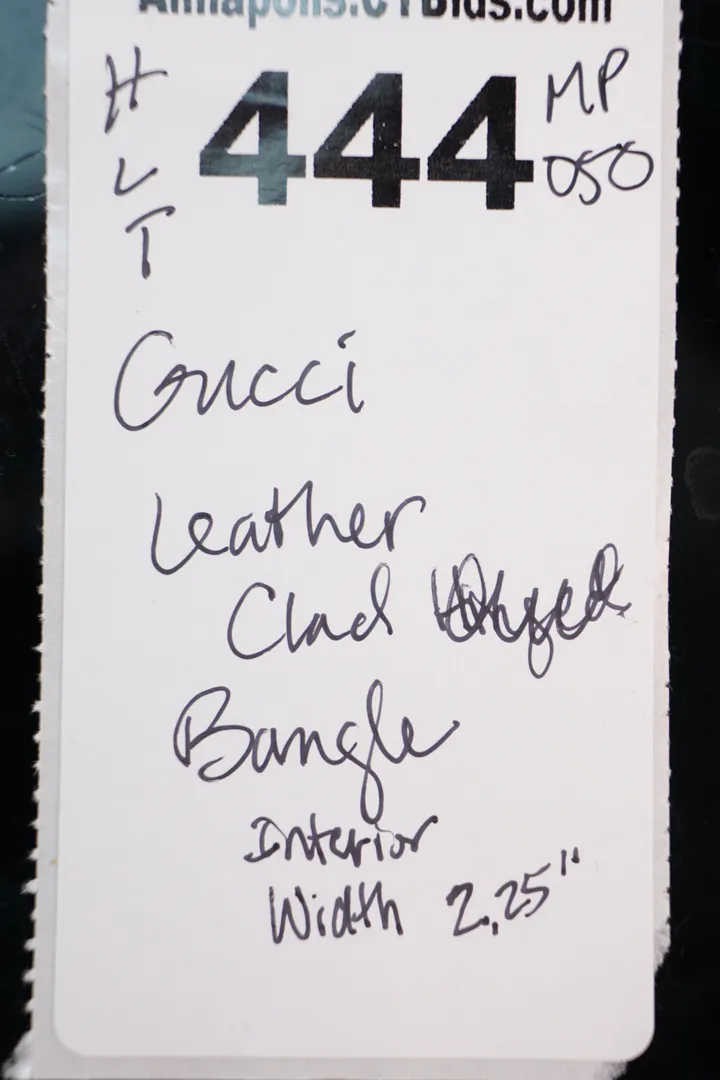 Annapolis.CTBids.com
H 444 MP
L 050
T
Gucci
Leather
Clad
Bangle
Interior
Width 2.25"